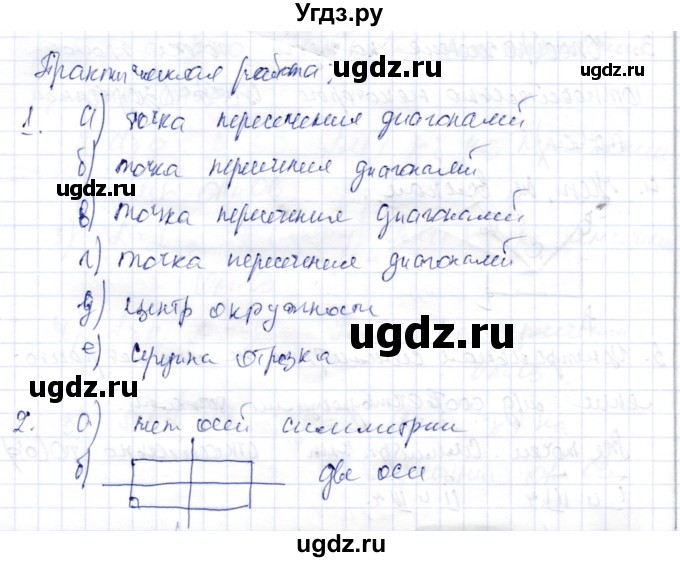 Угдз.ру
Практическая работа,
1. а) точка пересечения диагоналей
б) точка пересечения диагоналей
в) точка пересечения диагоналей
г) точка пересечения диагоналей
д) центр окружности
е) середина отрезка
2. а) нет осей симметрии
б) две оси
ugdz.ru
ugdz.ru
ugdz.ru
ugdz.ru
ugdz.ru
ugdz.ru
ugdz.ru